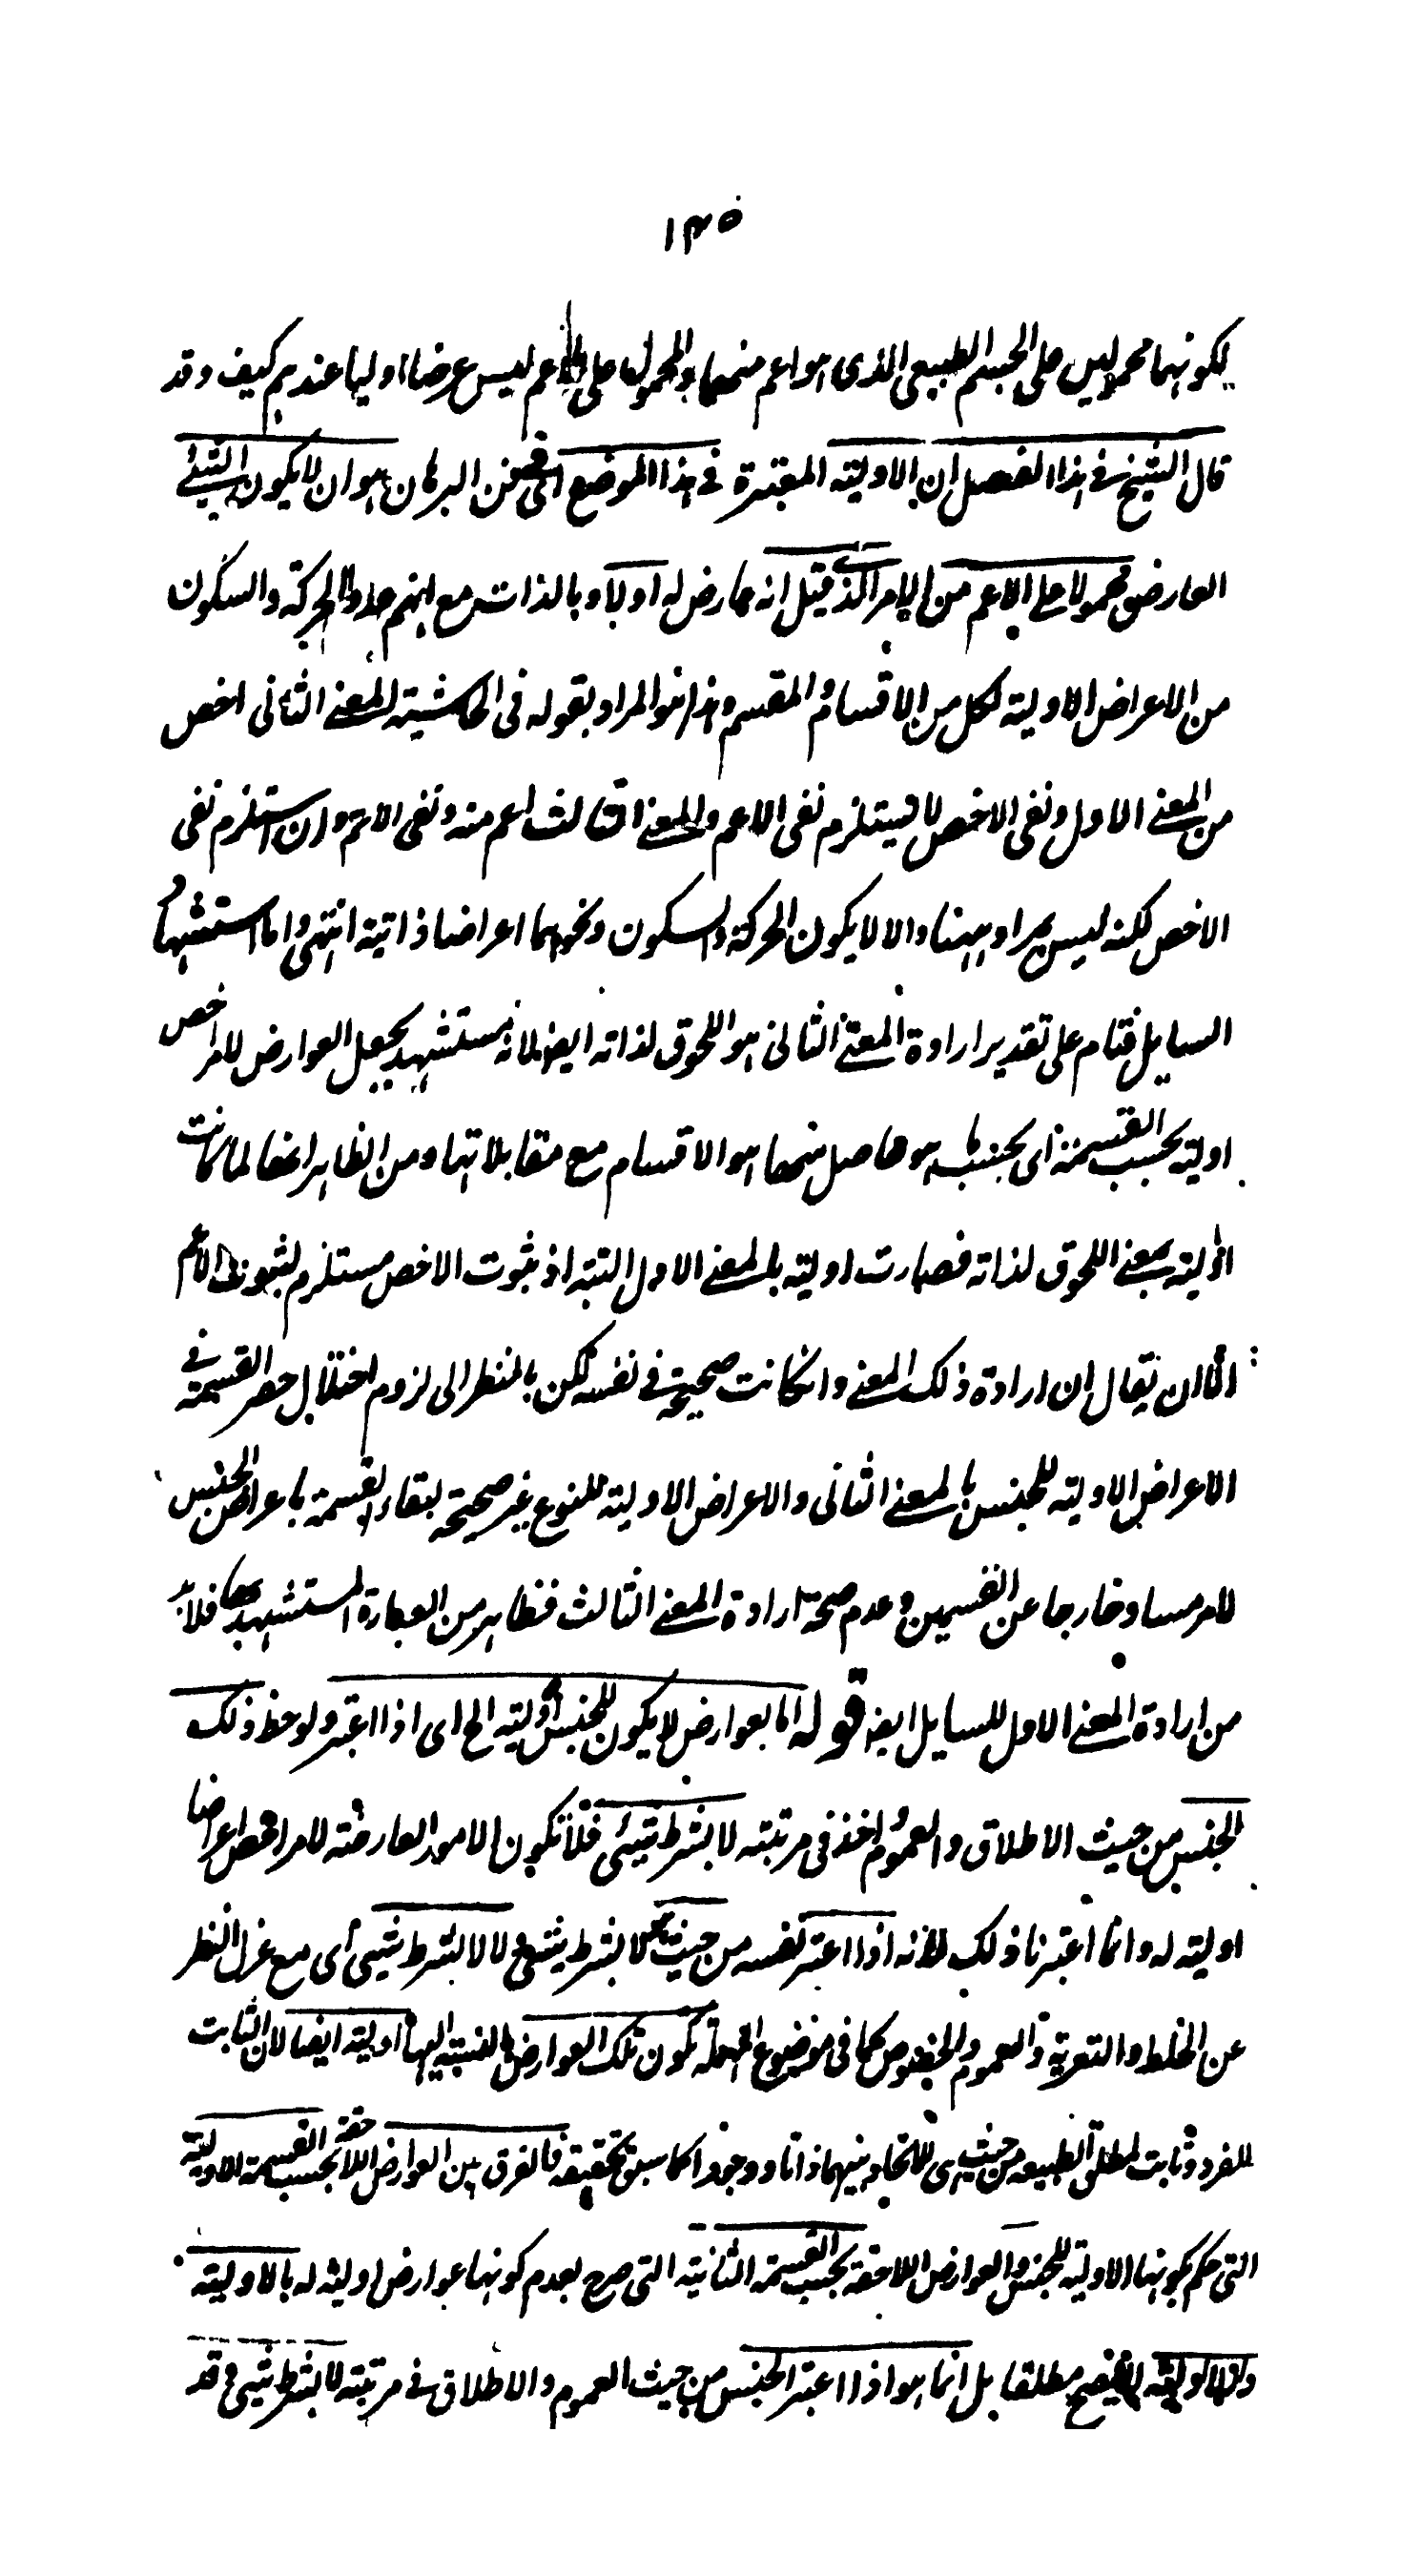 ١٣٥
لكونهما محمولين على الجسم الطبيعى الذى هو اعم منهما والمحمول على الاعم ليس عرضا اوليا عندهم كيف وقد
قال الشيخ فى هذا الفصل ان الاولية المعتبرة فى هذا الموضع اى فى فن البرهان هو ان لا يكون الشيئ
العارض محمولا على الاعم من الامر الذى قيل انه عارض له اولا و بالذات مع انهم عدوا الحركة والسكون
من الاعراض الاولية لكل من الاقسام و المقسم وهذا هو المراد بقوله فى الحاشية المعنى الثانى اخص
من المعنى الاول ونفى الاخص لا يستلزم نفى الاعم والمعنى الثالث اعم منه ونفى الاعم وان استلزم نفى
الاخص لكنه ليس بمراد ههنا والا لا يكون الحركة والسكون ونحوهما اعراضا ذاتية انتهى واما استشهاد
السايل فتام على تقدير ارادة المعنى الثانى هو اللحوق لذاته ايضا لانه يستشهد بجعل العوارض للامر اخص
اولية بحسب القسمة اى بجنسها هو حاصل منهما هو الاقسام مع مقابلاتها ومن الظاهر انها لما كانت
اولية بمعنى اللحوق لذاته فصارت اولية بالمعنى الاول البتة اذ ثبوت الاخص مستلزم لثبوت الاعم
الا ان يقال ان ارادة ذلك المعنى وانكانت صحيحة فى نفسه لكن بالنظر الى لزوم اختلال حصر القسمة فى
الاعراض الاولية للجنس بالمعنى الثانى والاعراض الاولية للنوع غير صحيحة لبقاء القسمة باعراض الجنس
لامر مساو خارجا عن القسمين وعدم صحة ارادة المعنى الثالث فظاهر من العبارة المستشهد بها فلا بد
من ارادة المعنى الاول للسايل ايضا قوله اما بعوارض لا يكون للجنس اولية الخ اى اذا اعتبر ولوحظ ذلك
الجنس من حيث الاطلاق والعموم واخذ فى مرتبته لا بشرط شيئ فلا تكون الامور العارضة للامر اخص اعراضا
اولية له وانما اعتبرنا ذلك لانه اذا اعتبر نفسه من حيث هى لا بشرط شيئ لا لا بشرط شيئ اى مع عزل النظر
عن الخلط والتعرية والعموم والخصوص كما فى موضوع المهملة تكون تلك العوارض بالنسبة اليها اولية ايضا لان الثابت
للفرد ثابت لمطلق الطبيعة من حيث هى للاتحاد بينهما ذاتا ووجودا كما سبق تحقيقه فالفرق بين العوارض اللاحقة بحسب القسمة الاولية
التى حكم بكونها الاولية للجنس والعوارض اللاحقة بحسب القسمة الثانية التى صرح بعدم كونها عوارض اولية له بالاولية
مطلقا بل انما هو اذا اعتبر الجنس من حيث العموم والاطلاق فى مرتبته لا بشرط شيئ وقد